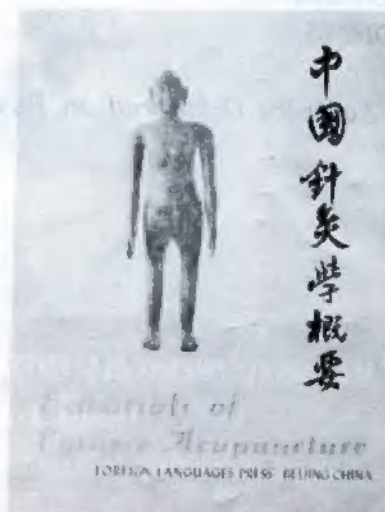 中國針灸學概要
Essentials of
Chinese Acupuncture
FOREIGN LANGUAGES PRESS BEIJING CHINA